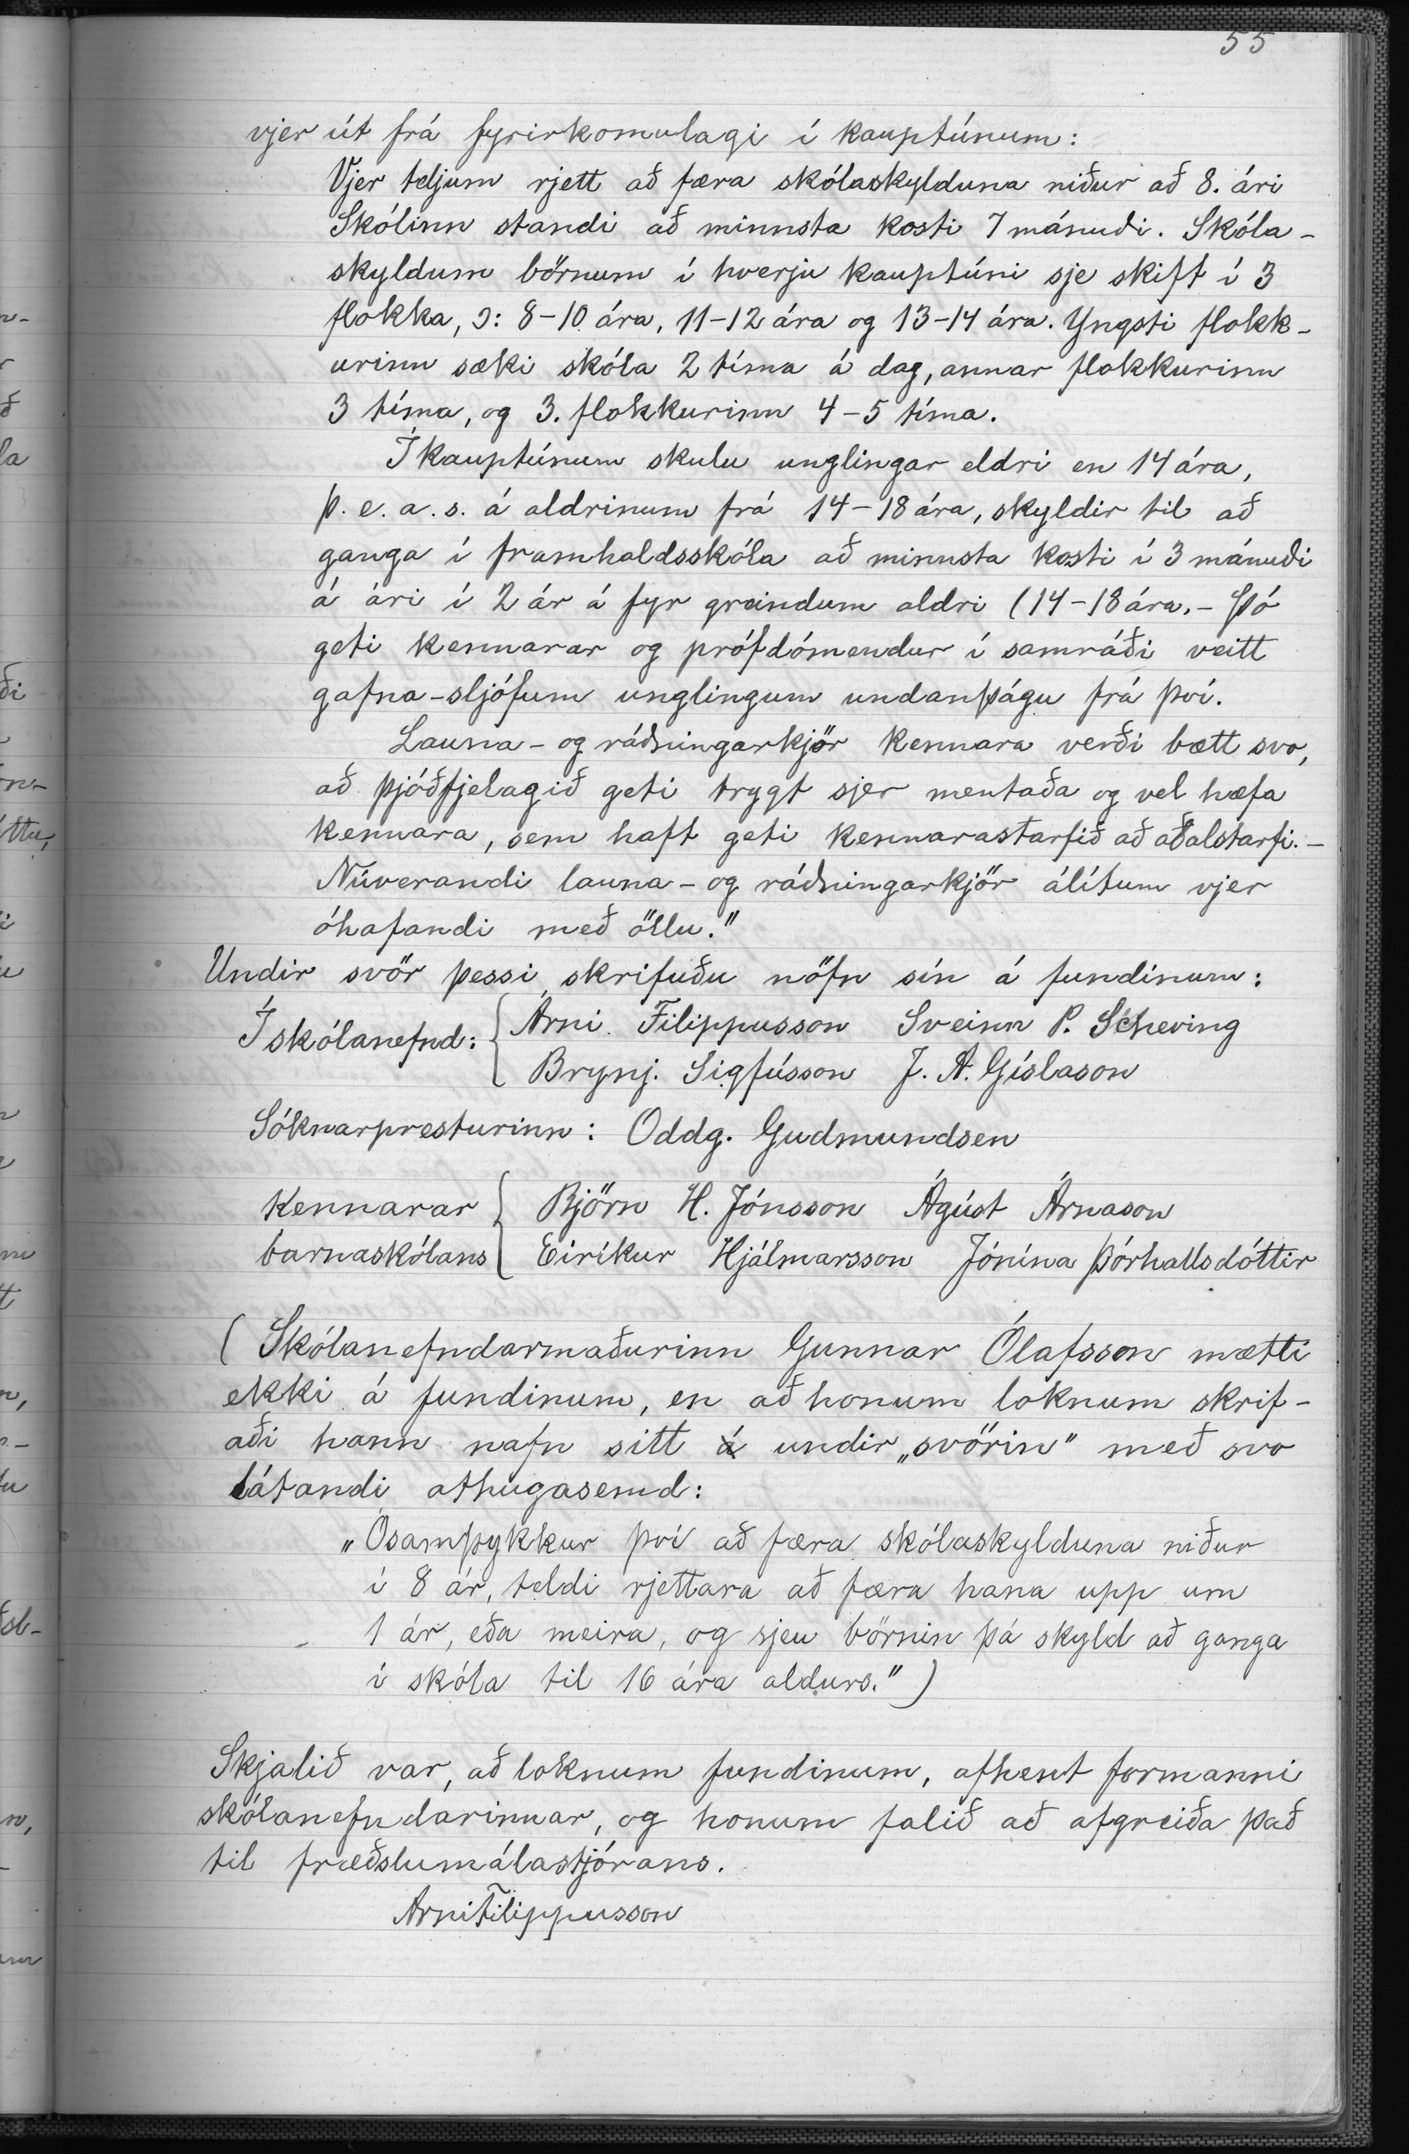 55
vjer út frá fyrirkomulagi í kauptúnum:
Vjer teljum rjett að færa skólaskylduna niður að 8. ári
Skólinn standi að minnsta kosti 7 mánuði. Skóla-
skyldum börnum í hverju kauptúni sje skift í 3
flokka, ɔ: 8-10 ára, 11-12 ára og 13-14 ára. Yngsti flokk-
urinn sæki skóla 2 tíma á dag, annar flokkurinn
3 tíma, og 3. flokkurinn 4-5 tíma.
Í kauptúnum skulu unglingar eldri en 14 ára,
þ. e. a. s. á aldrinum frá 14-18 ára, skyldir til að
ganga í framhaldsskóla að minnsta kosti í 3 mánuði
á ári í 2 ár á fyr greindum aldri (14-18 ára. - Þó
geti kennarar og prófdómendur í samráði veitt
gafna-sljófum unglingum undanþágu frá því.
Launa- og ráðningarkjör kennara verði bætt svo,
að þjóðfjelagið geti trygt sjer mentaða og vel hæfa
kennara, sem haft geti kennarastarfið að aðalstarfi. -
Núverandi launa- og ráðningarkjör álítum vjer
óhafandi með öllu."
Undir svör þessi skrifuðu nöfn sín á fundinum:
Í skólanefnd: { Árni Filippusson Sveinn P. Scheving
Brynj. Sigfússon J. A. Gíslason
Sóknarpresturinn: Oddg. Gudmundsen
Kennarar { Björn H. Jónsson Ágúst Árnason
barnaskólans Eiríkur Hjálmarsson Jónína Þórhallsdóttir
( Skólanefndarmaðurinn Gunnar Ólafsson mætti
ekki á fundinum, en að honum loknum skrif-
aði hann nafn sitt á undir „svörin" með svo
látandi athugasemd:
„Ósamþykkur því að færa skólaskylduna niður
í 8 ár, teldi rjettara að færa hana upp um
1 ár, eða meira, og sjeu börnin þá skyld að ganga
í skóla til 16 ára aldurs.")
Skjalið var, að loknum fundinum, afhent formanni
skólanefndarinnar, og honum falið að afgreiða það
til fræðslumálastjórans.
Árni Filippusson